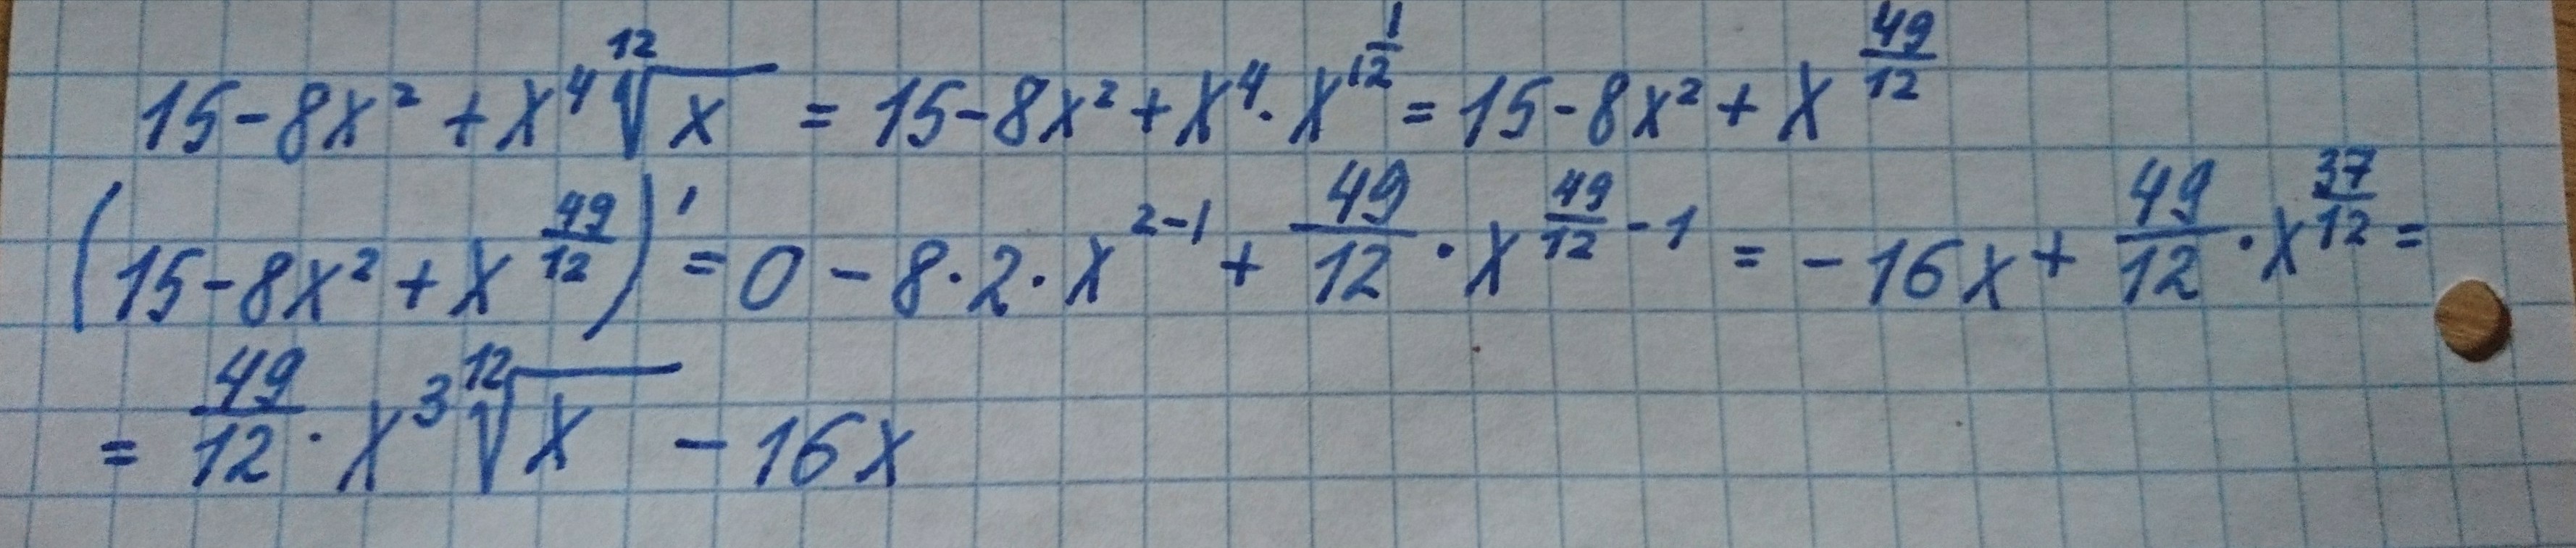 15-8x² + x⁴ ¹²√x = 15-8x² + x⁴ · x^(1/12) = 15-8x² + x^(49/12)
(15-8x² + x^(49/12))' = 0 - 8·2·x^(2-1) + 49/12 · x^(49/12 - 1) = -16x + 49/12 · x^(37/12) =
= 49/12 · x³ ¹²√x - 16x